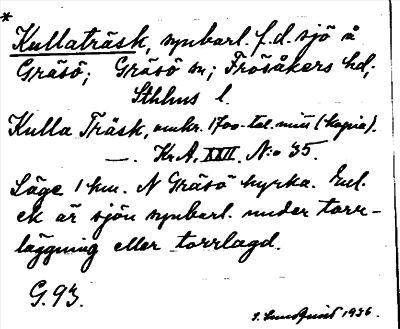 *
Kullaträsk, synbarl. f.d. sjö å
Gräsö; Gräsö sn; Frösåkers hd;
Sthlms l.
Kulla Träsk, omkr. 1700-tal. mitt (kopia).
—. Kr.A, XXII. N:o 35.
Läge 1 km. N Gräsö kyrka. Enl.
ek är sjön synbarl. under torr-
läggning eller torrlagd.
G. 93.
S. Lundquist 1936.